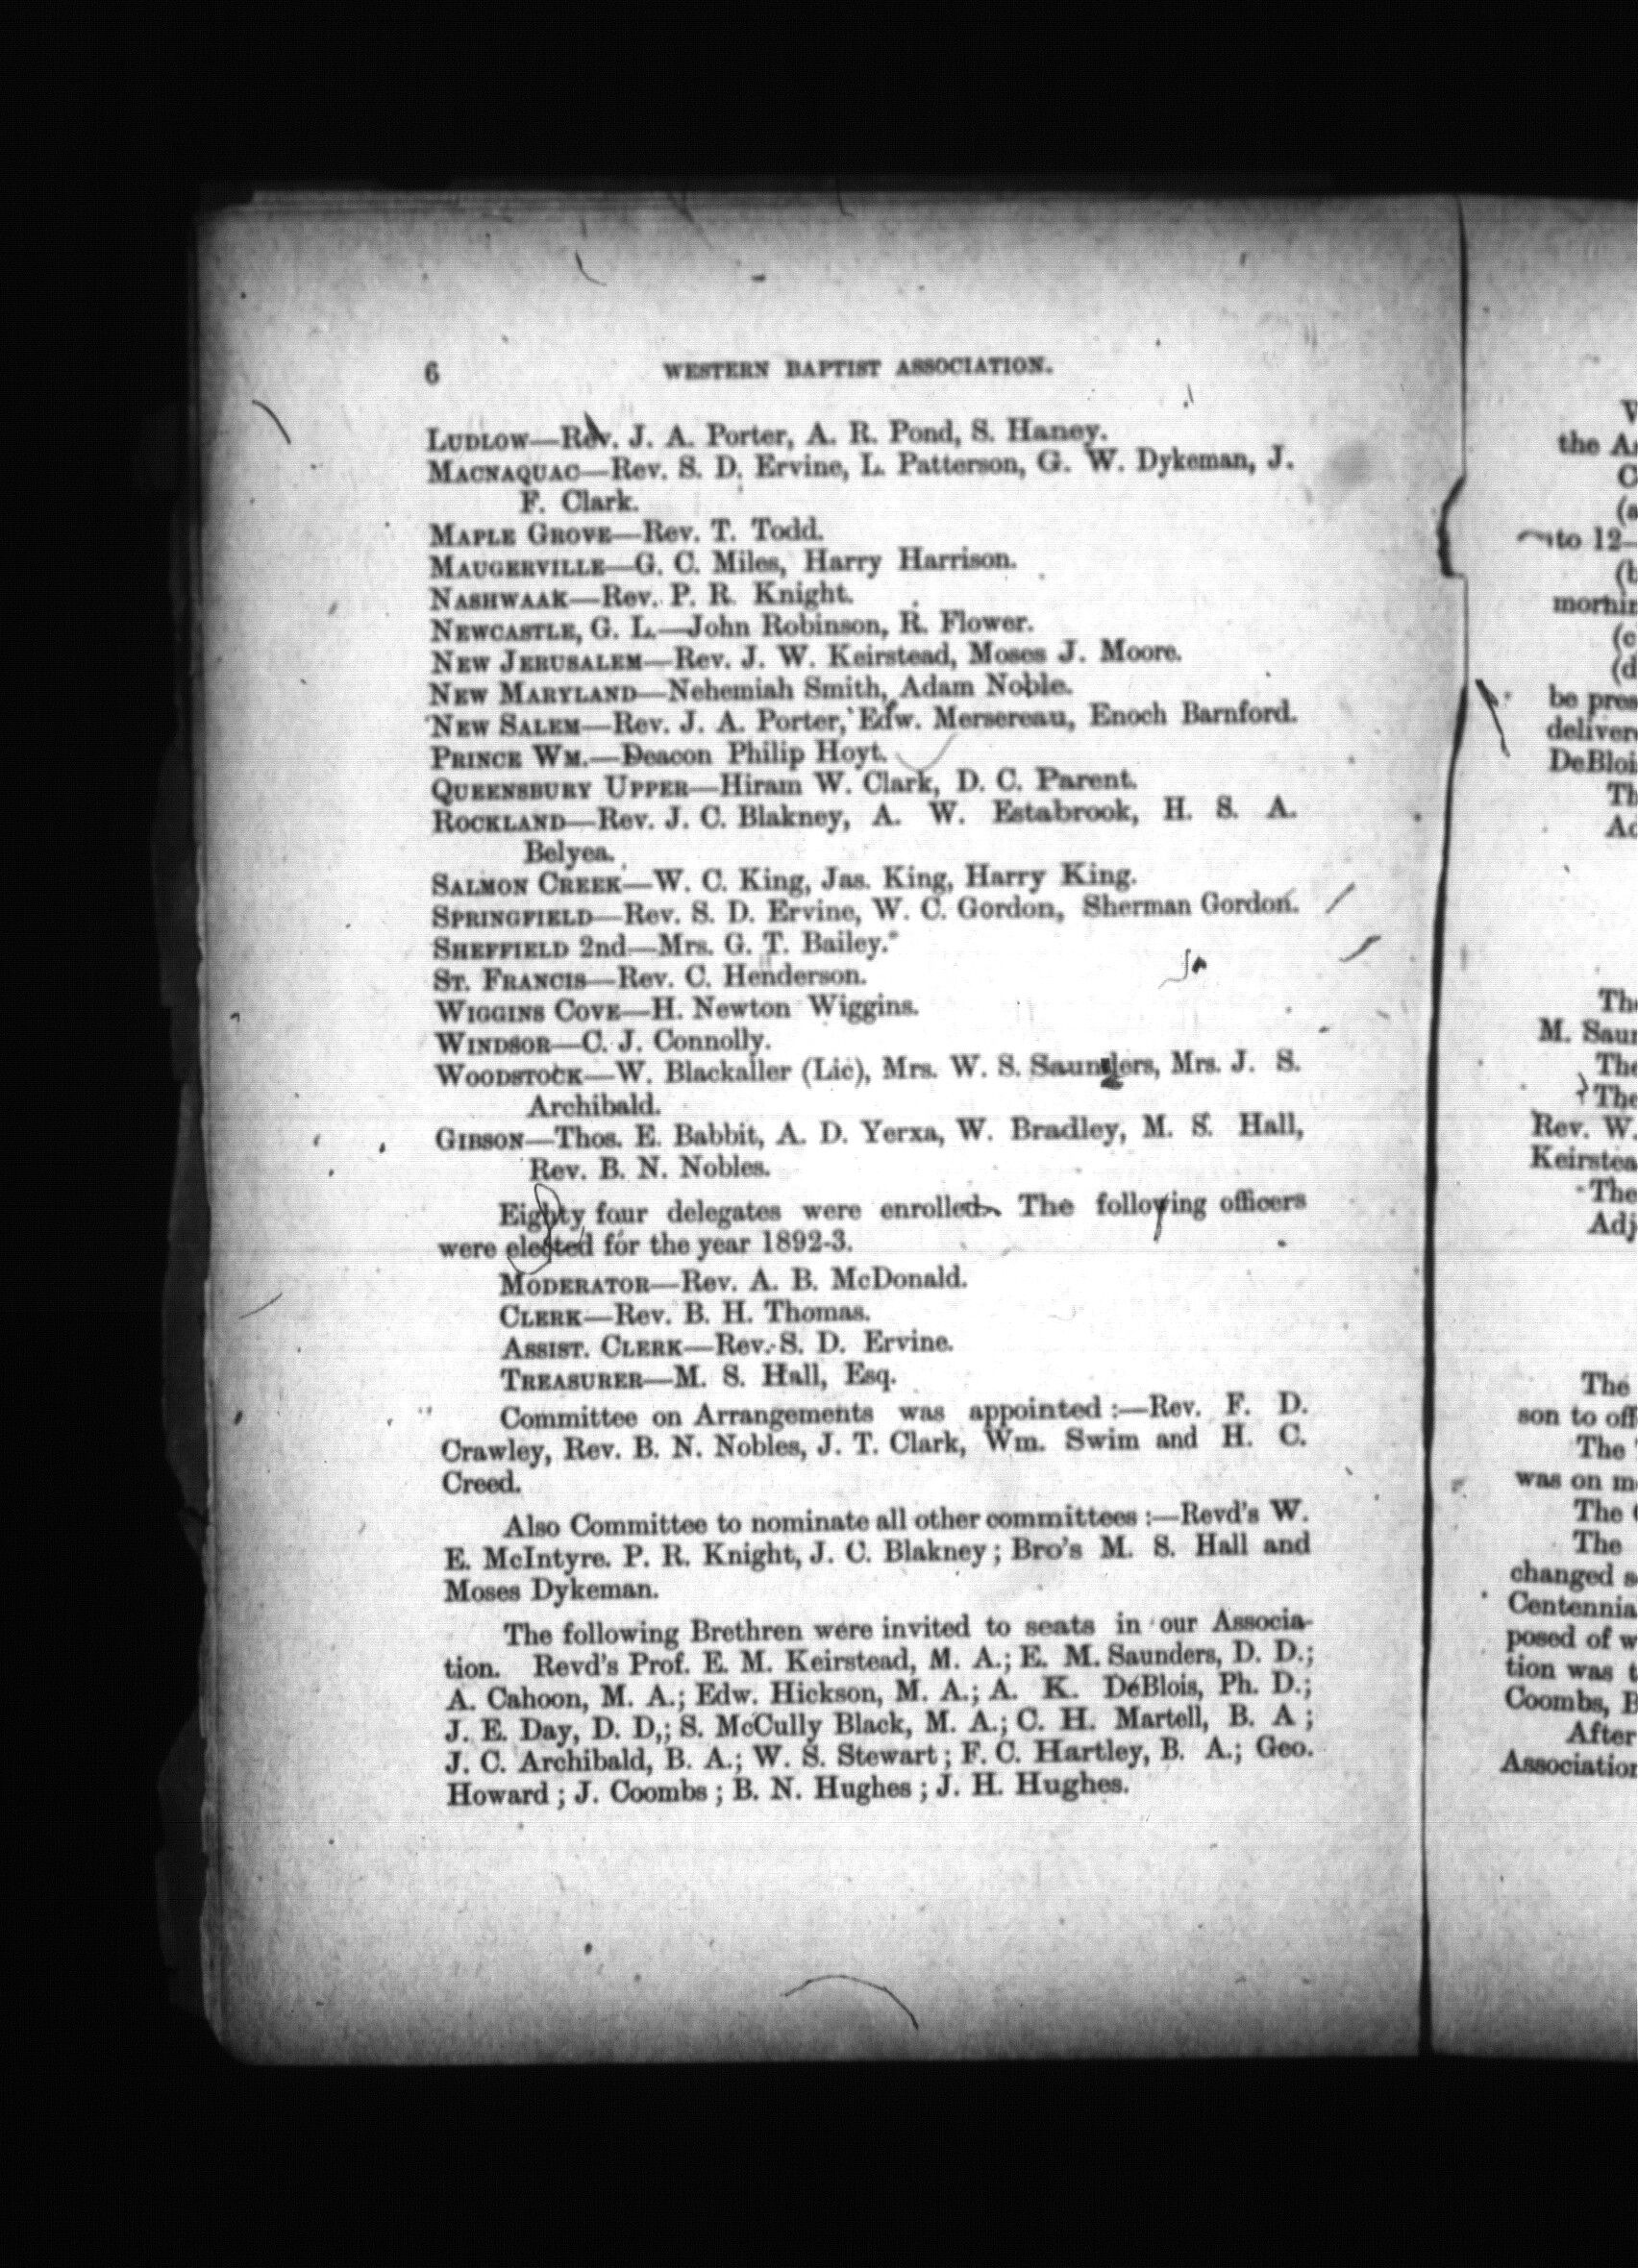 6 WESTERN BAPTIST ASSOCIATION.
LUDLOW—Rev. J. A. Porter, A. R. Pond, S. Haney.
MACNAQUAC—Rev. S. D. Ervine, L. Patterson, G. W. Dykeman, J.
F. Clark.
MAPLE GROVE—Rev. T. Todd.
MAUGERVILLE—G. C. Miles, Harry Harrison.
NASHWAAK—Rev. P. R. Knight.
NEWCASTLE, G. L.—John Robinson, R. Flower.
NEW JERUSALEM—Rev. J. W. Keirstead, Moses J. Moore.
NEW MARYLAND—Nehemiah Smith, Adam Noble.
NEW SALEM—Rev. J. A. Porter, Edw. Mersereau, Enoch Barnford.
PRINCE WM.—Deacon Philip Hoyt.
QUEENSBURY UPPER—Hiram W. Clark, D. C. Parent.
ROCKLAND—Rev. J. C. Blakney, A. W. Estabrook, H. S. A.
Belyea.
SALMON CREEK—W. C. King, Jas. King, Harry King.
SPRINGFIELD—Rev. S. D. Ervine, W. C. Gordon, Sherman Gordon.
SHEFFIELD 2nd—Mrs. G. T. Bailey.
ST. FRANCIS—Rev. C. Henderson.
WIGGINS COVE—H. Newton Wiggins.
WINDSOR—C. J. Connolly.
WOODSTOCK—W. Blackaller (Lic), Mrs. W. S. Saunders, Mrs. J. S.
Archibald.
GIBSON—Thos. E. Babbit, A. D. Yerxa, W. Bradley, M. S. Hall,
Rev. B. N. Nobles.
Eighty four delegates were enrolled. The following officers
were elected for the year 1892-3.
MODERATOR—Rev. A. B. McDonald.
CLERK—Rev. B. H. Thomas.
ASSIST. CLERK—Rev. S. D. Ervine.
TREASURER—M. S. Hall, Esq.
Committee on Arrangements was appointed :—Rev. F. D.
Crawley, Rev. B. N. Nobles, J. T. Clark, Wm. Swim and H. C.
Creed.
Also Committee to nominate all other committees :—Revd's W.
E. McIntyre. P. R. Knight, J. C. Blakney ; Bro's M. S. Hall and
Moses Dykeman.
The following Brethren were invited to seats in our Associa-
tion. Revd's Prof. E. M. Keirstead, M. A.; E. M. Saunders, D. D.;
A. Cahoon, M. A.; Edw. Hickson, M. A.; A. K. DeBlois, Ph. D.;
J. E. Day, D. D,; S. McCully Black, M. A.; C. H. Martell, B. A ;
J. C. Archibald, B. A.; W. S. Stewart ; F. C. Hartley, B. A.; Geo.
Howard ; J. Coombs ; B. N. Hughes ; J. H. Hughes.
the
to 12—
be
DeBlois
The
M.
The
The
Rev. W.
The
The
son to
The
was on
The
The
changed
posed of
tion was
Coombs,
After
Association